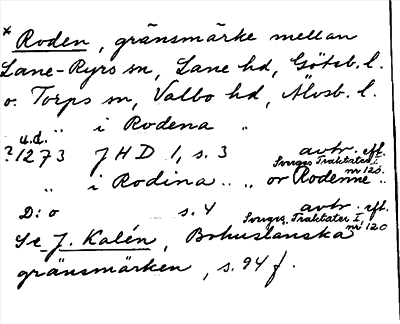 * Roden, gränsmärke mellan
Lane-Ryrs sn, Lane hd, Götsb. l.
o. Torps sn, Valbo hd, Älvsb. l.
„ i Rodena „
u.d.
?1273 JHD 1, s. 3 avtr. eft.
Sveriges Traktater I
nr 120.
„ i Rodina „ „ or Rodenne „
D:o s. 4 avtr. eft.
Sveriges Traktater I,
nr 120
Se J. Kalén, Bohuslänska
gränsmärken, s. 94 f.